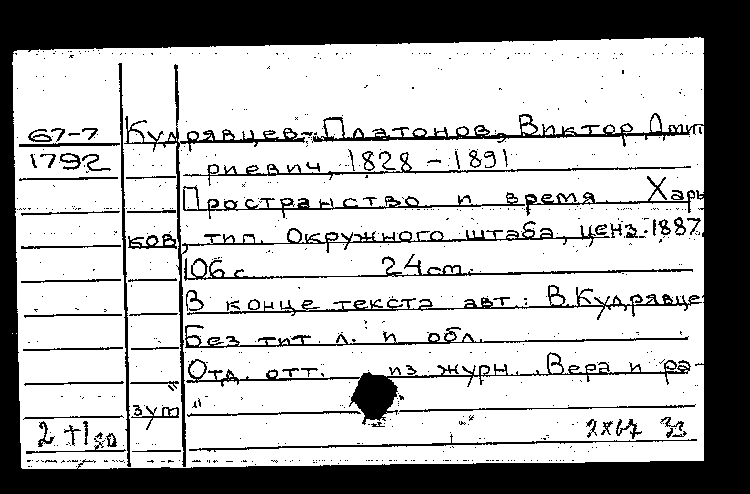 67-7 Кудрявцев-Платонов, Виктор Дмит
1792 риевич, 1828 - 1891
Пространство и время Харь
ков, тип. Окружного штаба, ценз. 1887.
106 с 24 cm.
В конце текста авт.: В.Кудрявце
Без тит л. и обл.
Отд. отт. из журн. "Вера и ра-
зум"
2 +1